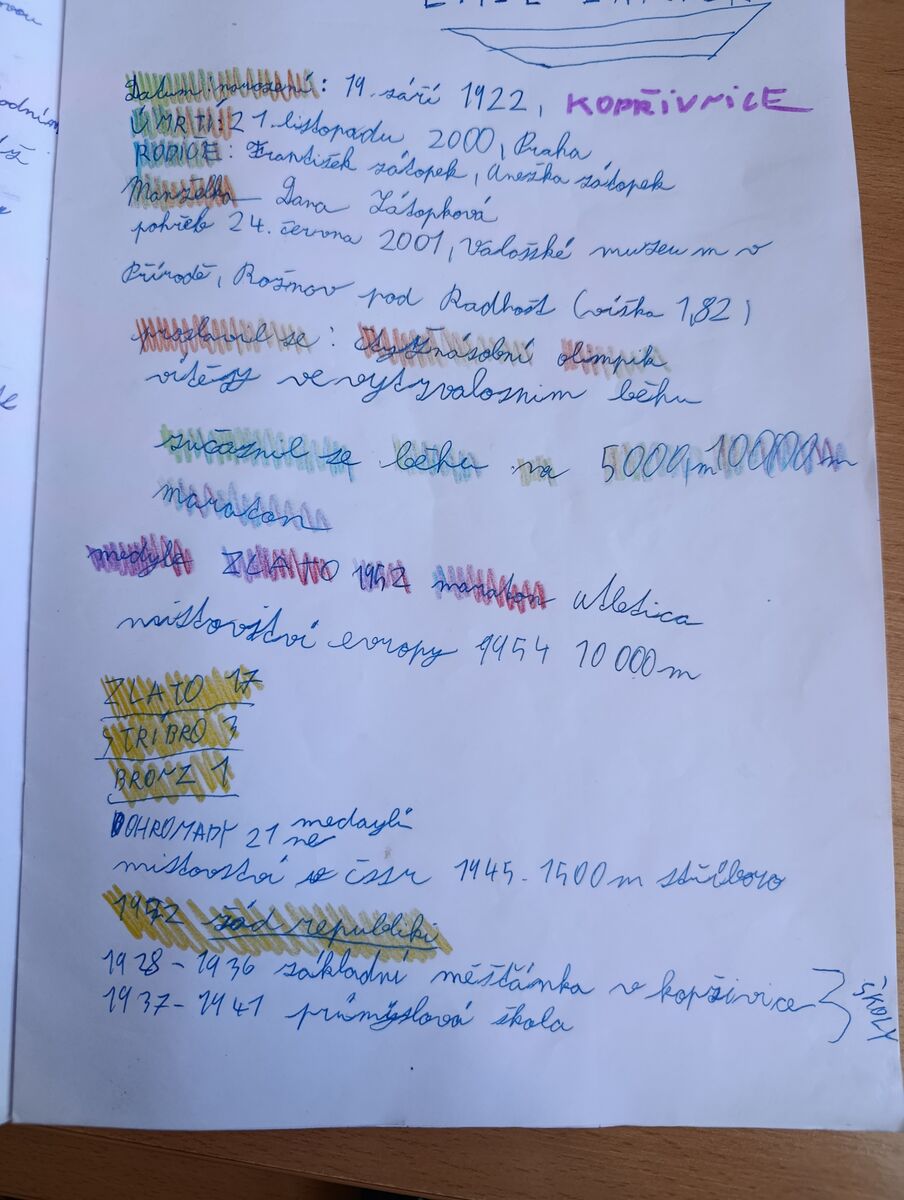 Datum narození: 19. září 1922, KOPŘIVNICE
ÚMRTÍ: 21. listopadu 2000, Praha
RODIČE: František zátopek, Anežka zátopek
Manželka Dana Zátopková
pohřeb 24. června 2001, Valašské museum v
Přírodě, Rožnov pod Radhošt (víška 1,82)
proslavil se: čtyřnásobní olimpik
vítězy ve vytyvalosnim běhu
zučásnil se běhu na 5000m 10000m
maraton
medyle ZLATO 1952 maraton atletica
mistovství evropy 1954 10 000m
ZLATO 17
STŘÍBRO 3
BRONZ 1
DOHROMADY 21 medaylí
ne
mistovství v čssr 1945-1500m stříboro
řád republiki
1928-1936 základní měšťánka v kopřivice
1937-1941 průmyslová škola
ŠKOLY